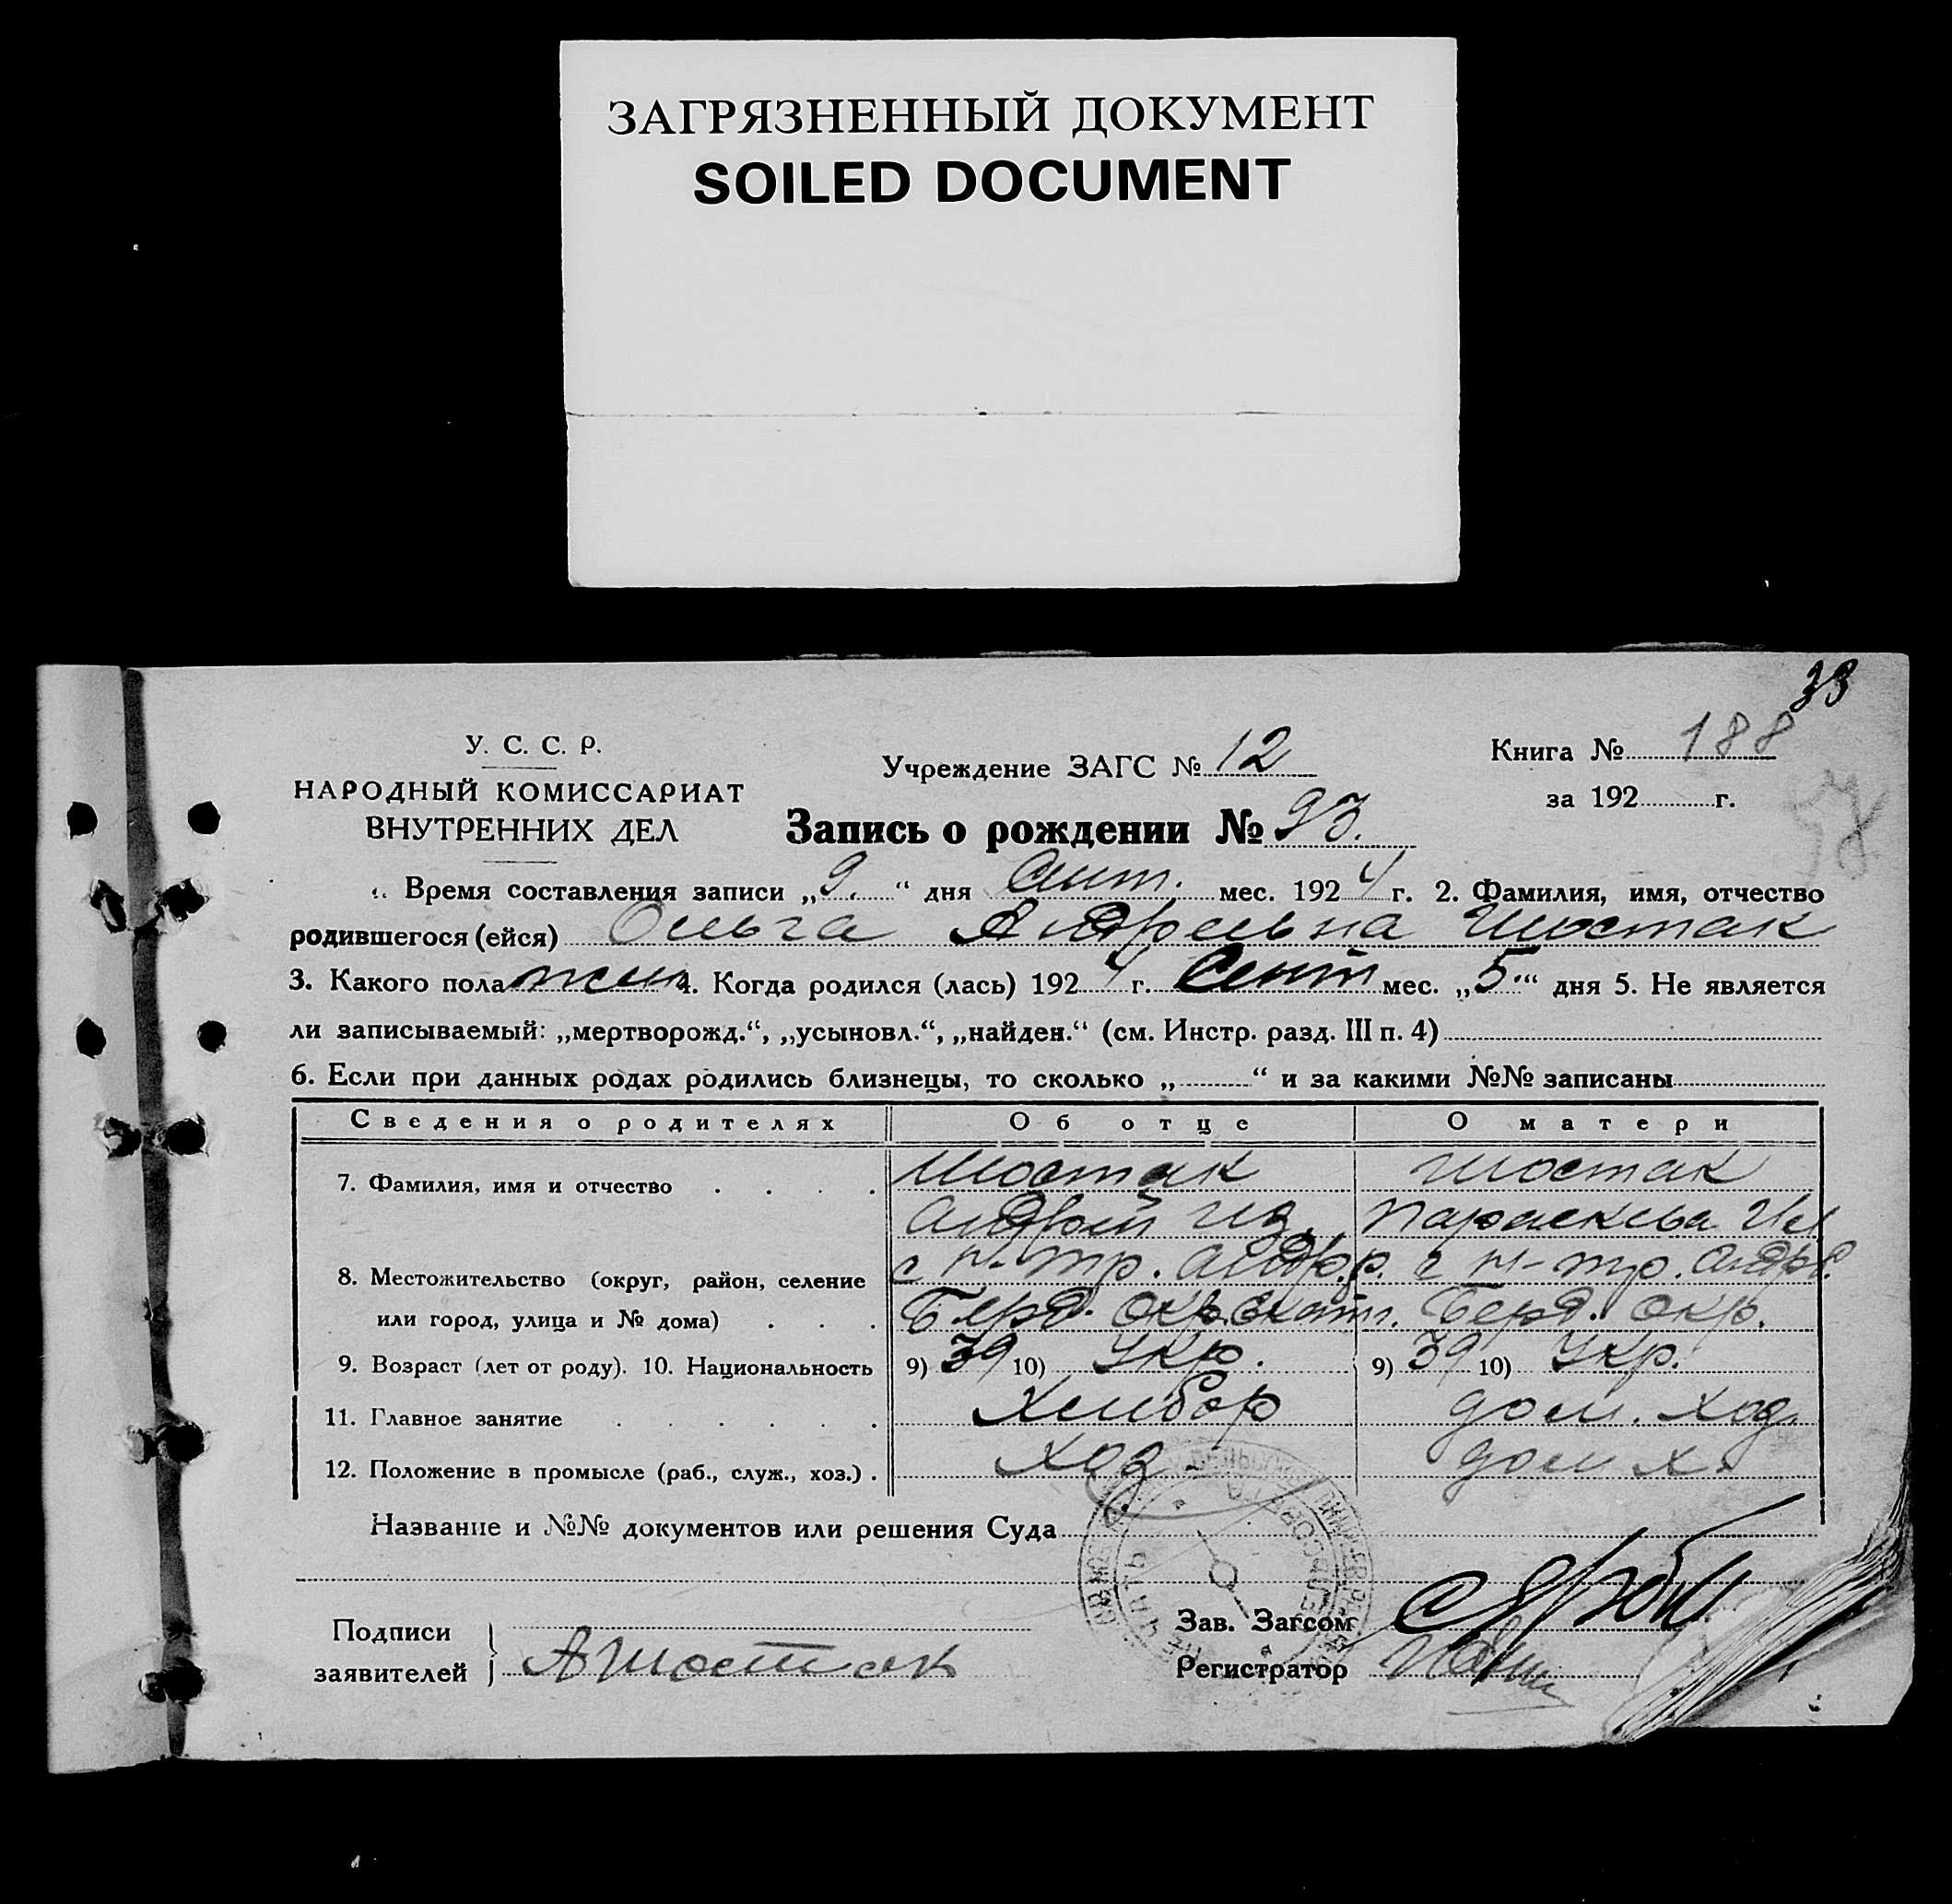 ЗАГРЯЗНЕННЫЙ ДОКУМЕНТ
SOILED DOCUMENT
33
У. С. С. Р.
НАРОДНЫЙ КОМИССАРИАТ
ВНУТРЕННИХ ДЕЛ
Учреждение ЗАГС № 12
Книга № 188
за 192 г.
Запись о рождении № 93.
Время составления записи „9.“ дня Сент. мес. 1924 г. 2. Фамилия, имя, отчество
родившегося (ейся) Ольга Андреевна Шостак
3. Какого пола жен 4. Когда родился (лась) 1924 г. Сент мес. „5.“ дня 5. Не является
ли записываемый: „мертворожд.“, „усыновл.“, „найден.“ (см. Инстр. разд. III п. 4)
6. Если при данных родах родились близнецы, то сколько „ “ и за какими №№ записаны
Сведения о родителях Об отце О матери
7. Фамилия, имя и отчество Шостак Шостак
Андрей Параскева
8. Местожительство (округ, район, селение
или город, улица и № дома) Берд. окр. Берд. окр.
9. Возраст (лет от роду). 10. Национальность 9) 39 10) Укр. 9) 39 10) Укр.
11. Главное занятие Хлебор дом. хоз.
12. Положение в промысле (раб., служ., хоз.) Хоз. дом х.
Название и №№ документов или решения Суда
Подписи
заявителей АШостак
Зав. Загсом
Регистратор
ПЕЧАТЬ